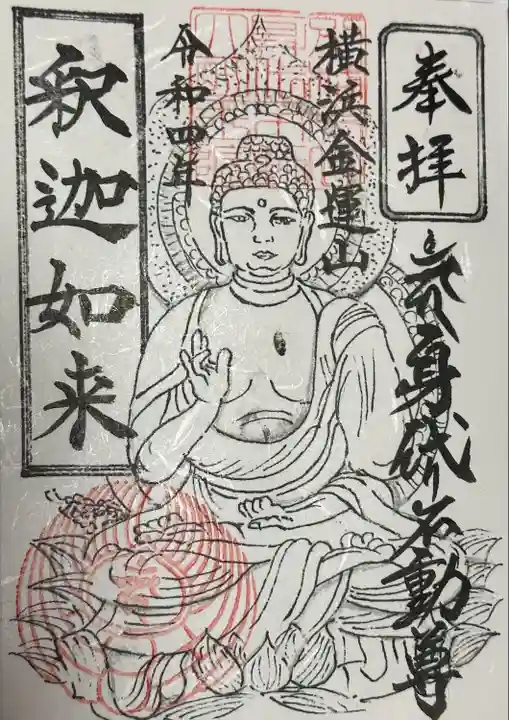 奉拝
身代り不動尊
横浜金運山
令和四年
釈迦如来